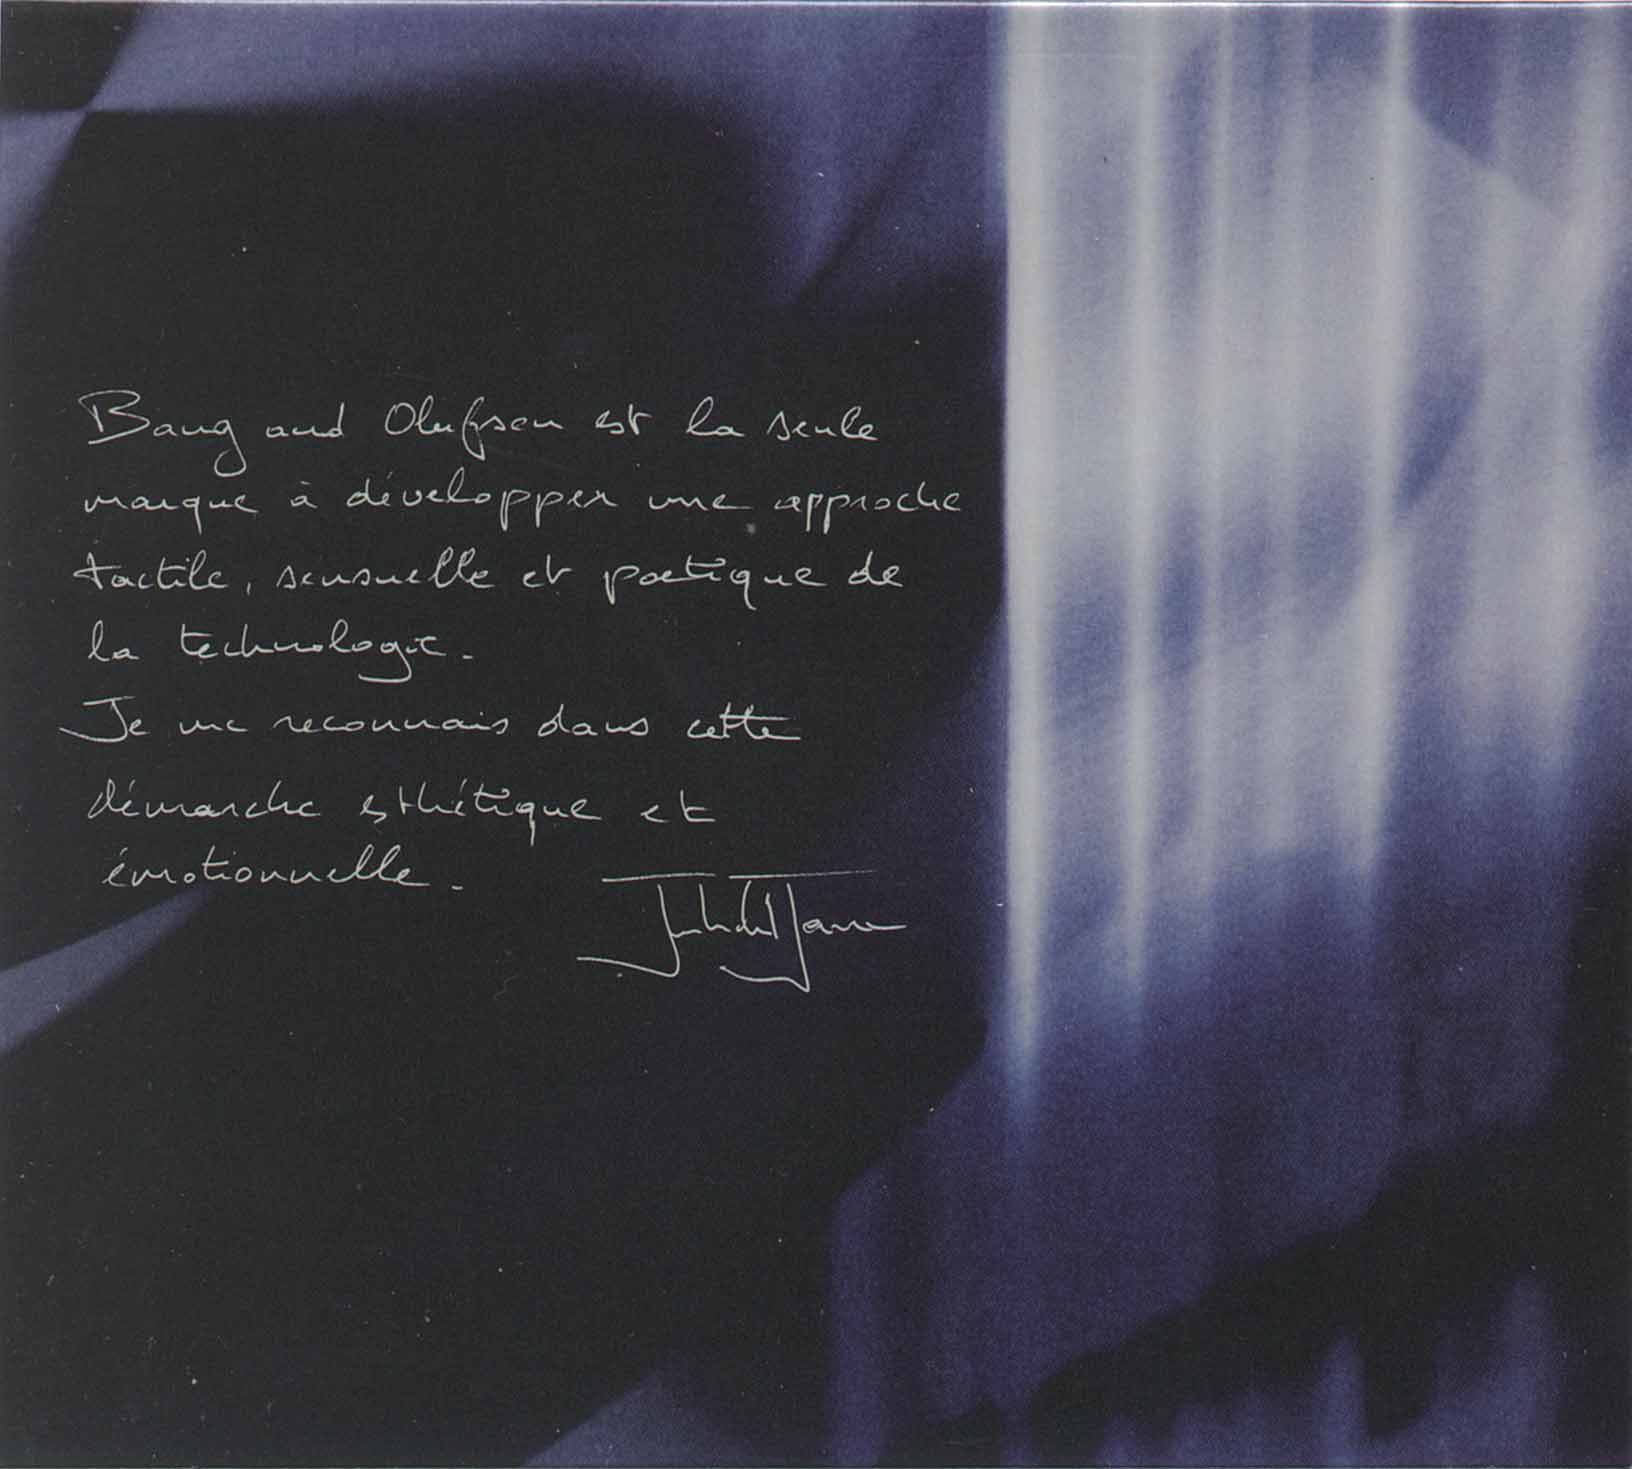 Bang and Olufsen est la seule
marque à développer une approche
tactile, sensuelle et poétique de
la technologie.
Je me reconnais dans cette
démarche esthétique et
émotionnelle.